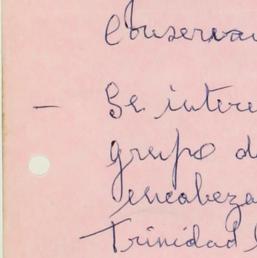 Observa
- Se intere
grupo d
encabeza
Trinidad